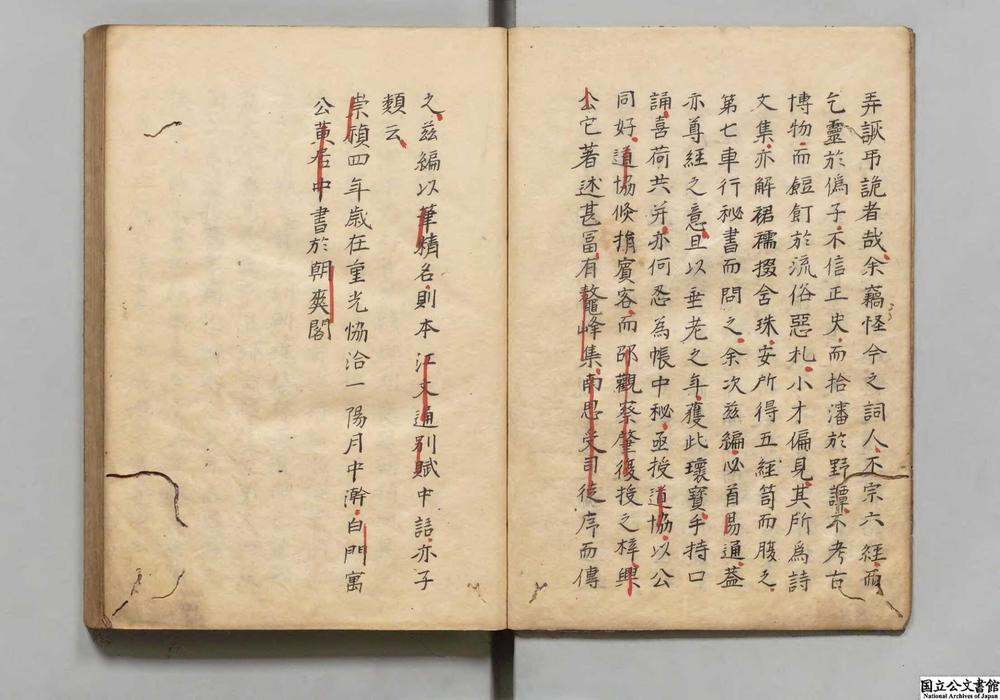 弄詼弔詭者哉余竊怪今之詞人不宗六經而
乞靈於偽子不信正史而拾瀋於野譚不考古
博物而餖飣於流俗惡札小才偏見其所為詩
文集亦解裙襦掇含珠安所得五經笥而腹之
第七車行秘書而問之余次茲編必首易通蓋
亦尊經之意且以垂老之年獲此瓌寶手持口
誦喜荷共并亦何忍為帳中秘亟授道協以公
同好道協倏捐賓客而邵觀蔡肇復授之梓興
公它著述甚富有鼇峰集南思受司徒序而傳
之茲編以筆精名則本江文通別賦中語亦子
類云
崇禎四年歲在重光協洽一陽月中澣白門寓
公黃居中書於朝爽閣
国立公文書館
National Archives of Japan